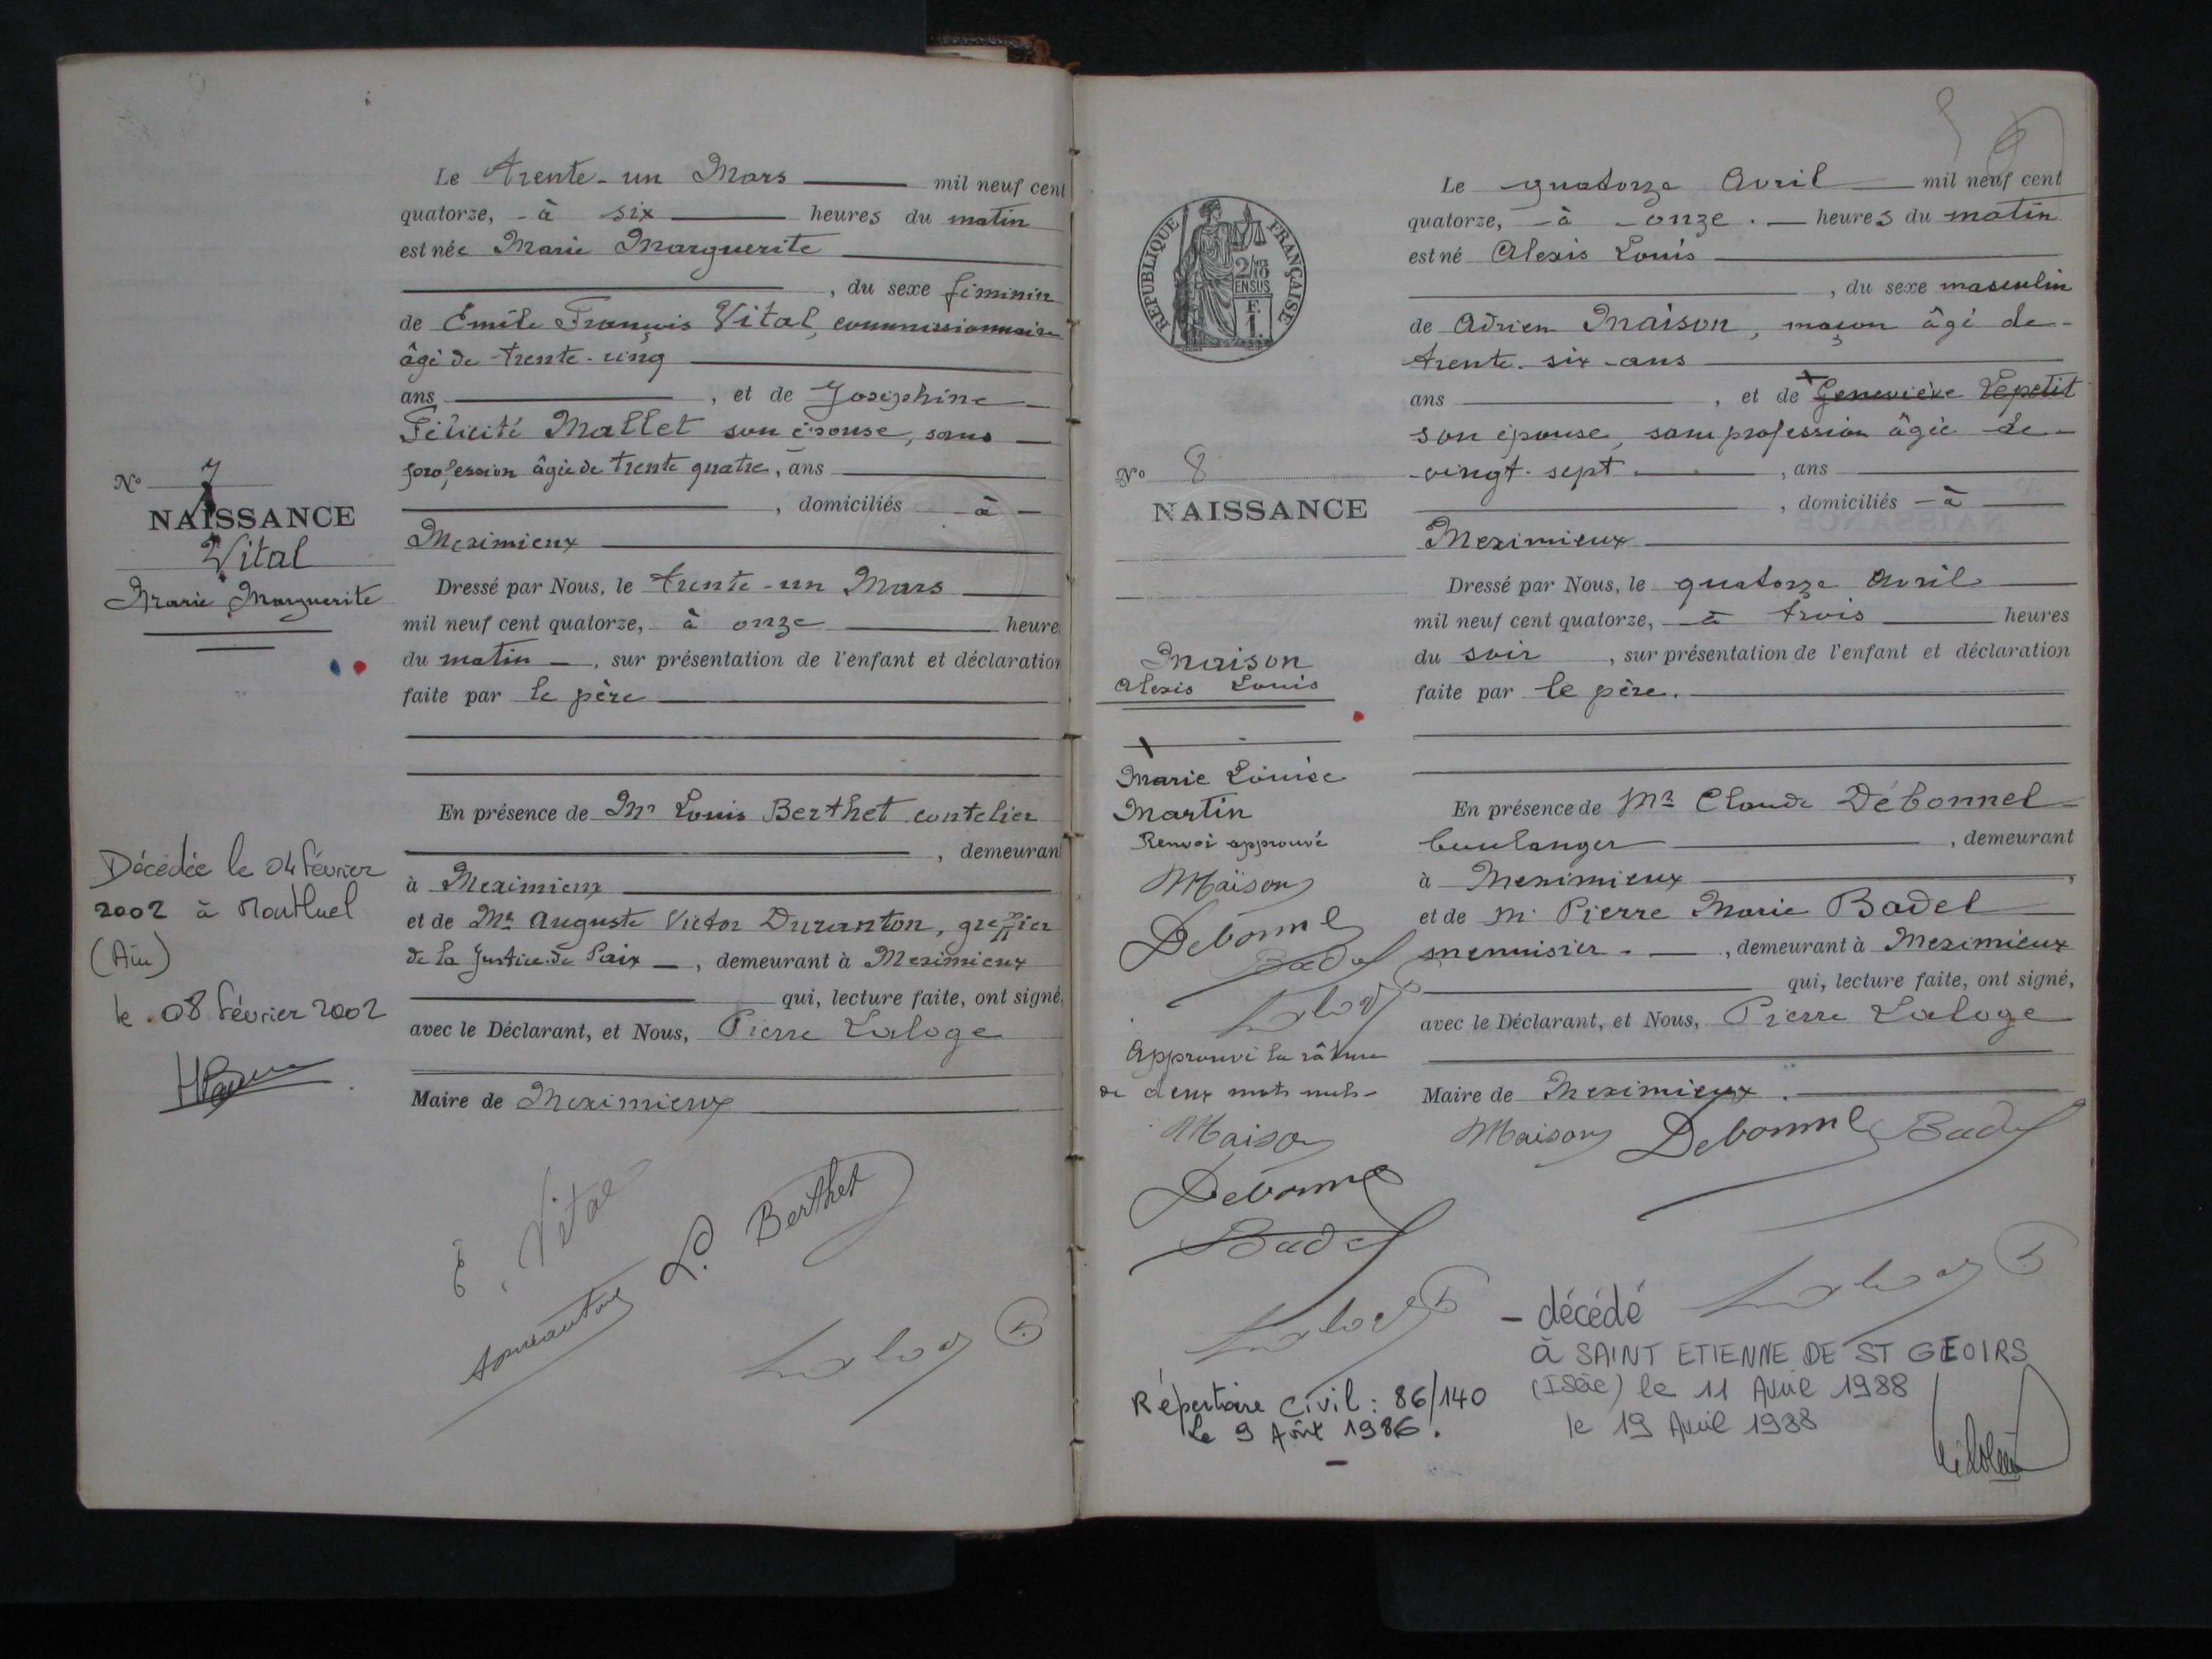 Le trente-un Mars mil neuf cent
quatorze, - à six heures du matin
est née Marie Marguerite
, du sexe féminin
de Emile François Vital, commissionnaire
âgé de trente-cinq
ans , et de Joséphine
Félicité Mallet son épouse, sans
profession âgée de trente quatre, ans
, domiciliés à
Meximieux
Dressé par Nous, le trente-un Mars
mil neuf cent quatorze, à onze heure
du matin , sur présentation de l'enfant et déclaration
faite par le père
En présence de Mr Louis Berthet coutelier
, demeuran
à Meximieux
et de Mr Auguste Victor Duranton, greffier
de la Justice de Paix , demeurant à Meximieux
qui, lecture faite, ont signé
avec le Déclarant, et Nous, Pierre Laloge
Maire de Meximieux
E. Vital
L. Berthet
No 7
NAISSANCE
Vital
Marie Marguerite
Décédée le 04 février
2002 à Montluel
(Ain)
le 08 février 2002
RÉPUBLIQUE FRANÇAISE
No 8
NAISSANCE
Maison
Alexis Louis
Marie Louise
Martin
Renvoi approuvé
Maison
Debonnel
Badel
Approuvé la râture
de deux mots nuls-
Maison
Debonnel
Badel
Répertoire Civil : 86/140
Le 9 Août 1986.
Le quatorze Avril mil neuf cent
quatorze, - à onze. heures du matin
est né Alexis Louis
, du sexe masculin
de Adrien Maison, maçon âgé de-
trente-six ans
ans , et de Geneviève Lepetit
son épouse, sans profession âgée de-
vingt-sept , ans
, domiciliés - à
Meximieux
Dressé par Nous, le quatorze Avril
mil neuf cent quatorze, à trois heures
du soir , sur présentation de l'enfant et déclaration
faite par le père.
En présence de Mr Claude Débonnel
boulanger , demeurant
à Meximieux
et de Mr Pierre Marie Badel
menuisier - , demeurant à Meximieux
qui, lecture faite, ont signé,
avec le Déclarant, et Nous, Pierre Laloge
Maire de Meximieux.
Maison Debonnel Badel
- décédé
à SAINT ETIENNE DE ST GEOIRS
(Isère) le 11 Avril 1988
le 19 Avril 1988